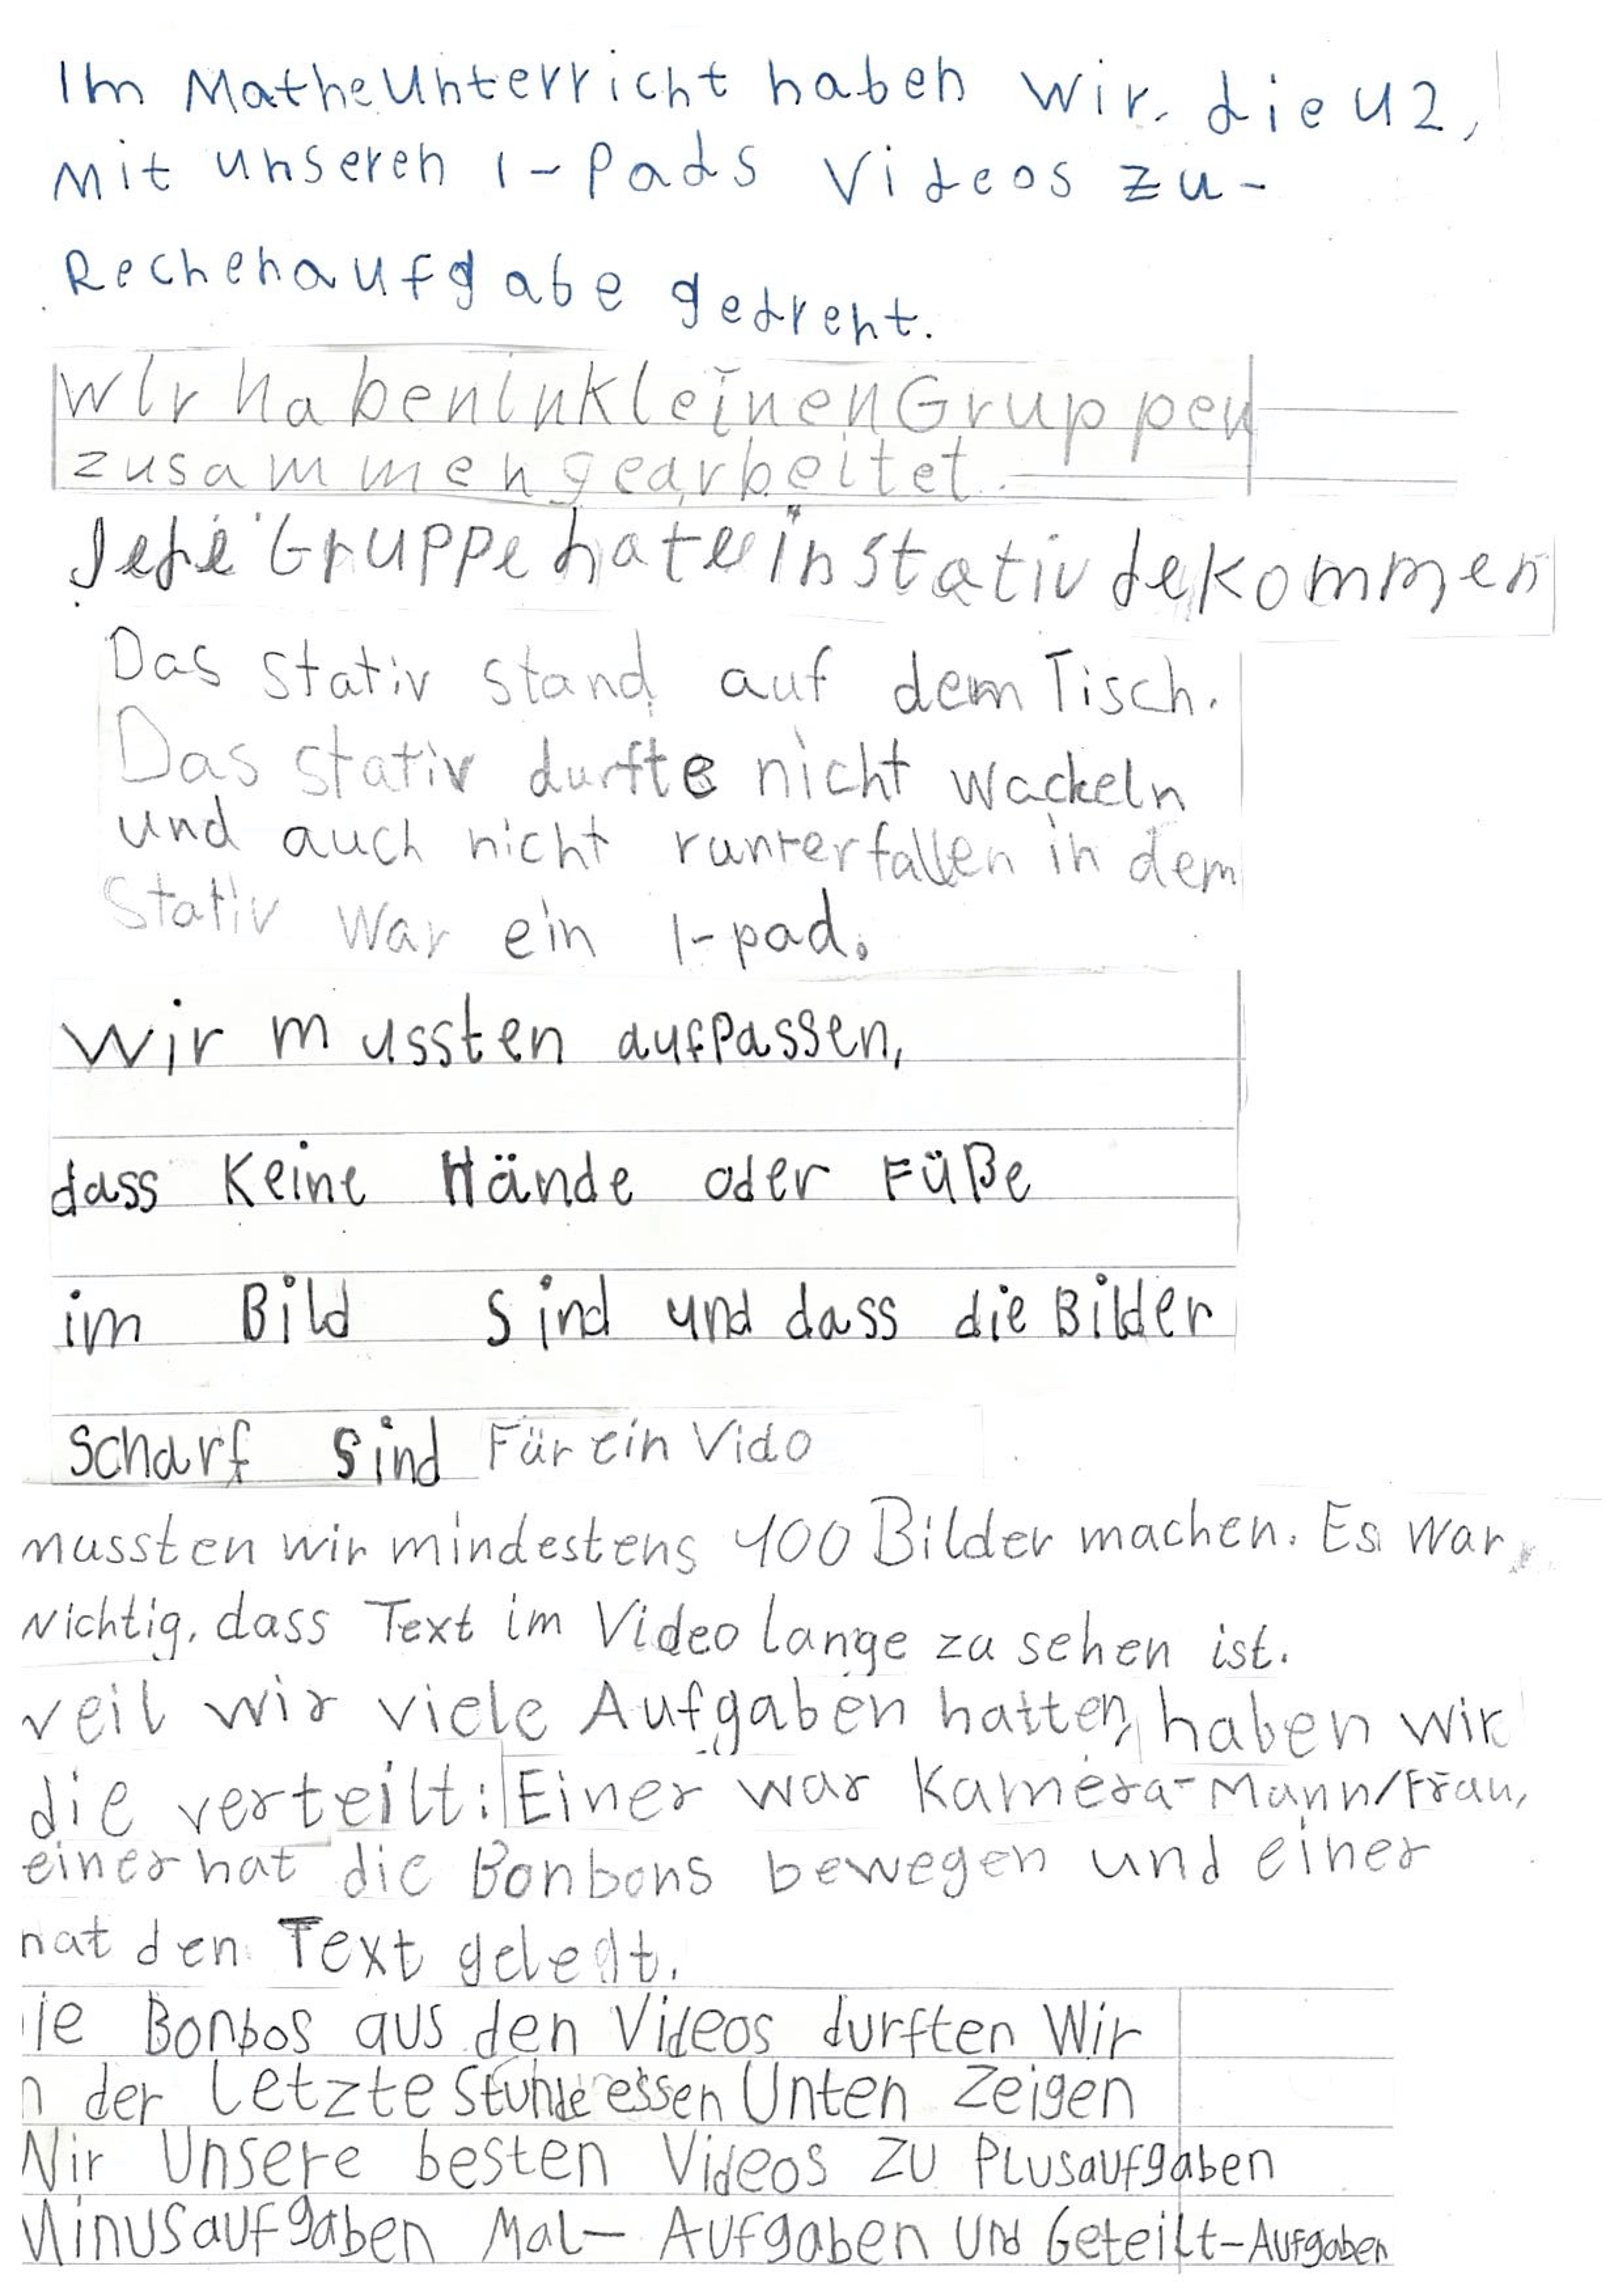 Im MatheUnterricht haben wir, die U2,
Mit unseren I-Pads Videos zu-
Rechenaufgabe gedreht.
Wir haben in kleinen Gruppen
zusammengearbeitet.
Jede Gruppe hat ein stativ bekommen
Das stativ stand auf dem Tisch.
Das stativ durfte nicht wackeln
und auch nicht runterfallen in dem
Stativ war ein I-pad.
Wir mussten aufpassen,
dass Keine Hände oder Füße
im Bild sind und dass die Bilder
scharf sind Für ein Vido
mussten wir mindestens 100 Bilder machen. Es war
wichtig, dass Text im Video lange zu sehen ist.
weil wir viele Aufgaben hatten, haben wir
die verteilt: Einer war Kamera-Mann/Frau,
einer hat die Bonbons bewegen und einer
hat den Text gelegt.
ie Bonbos aus den Videos durften Wir
n der letzte Stunde essen Unten Zeigen
Wir Unsere besten Videos zu Plusaufgaben
Minusaufgaben Mal- Aufgaben und Geteilt-Aufgaben